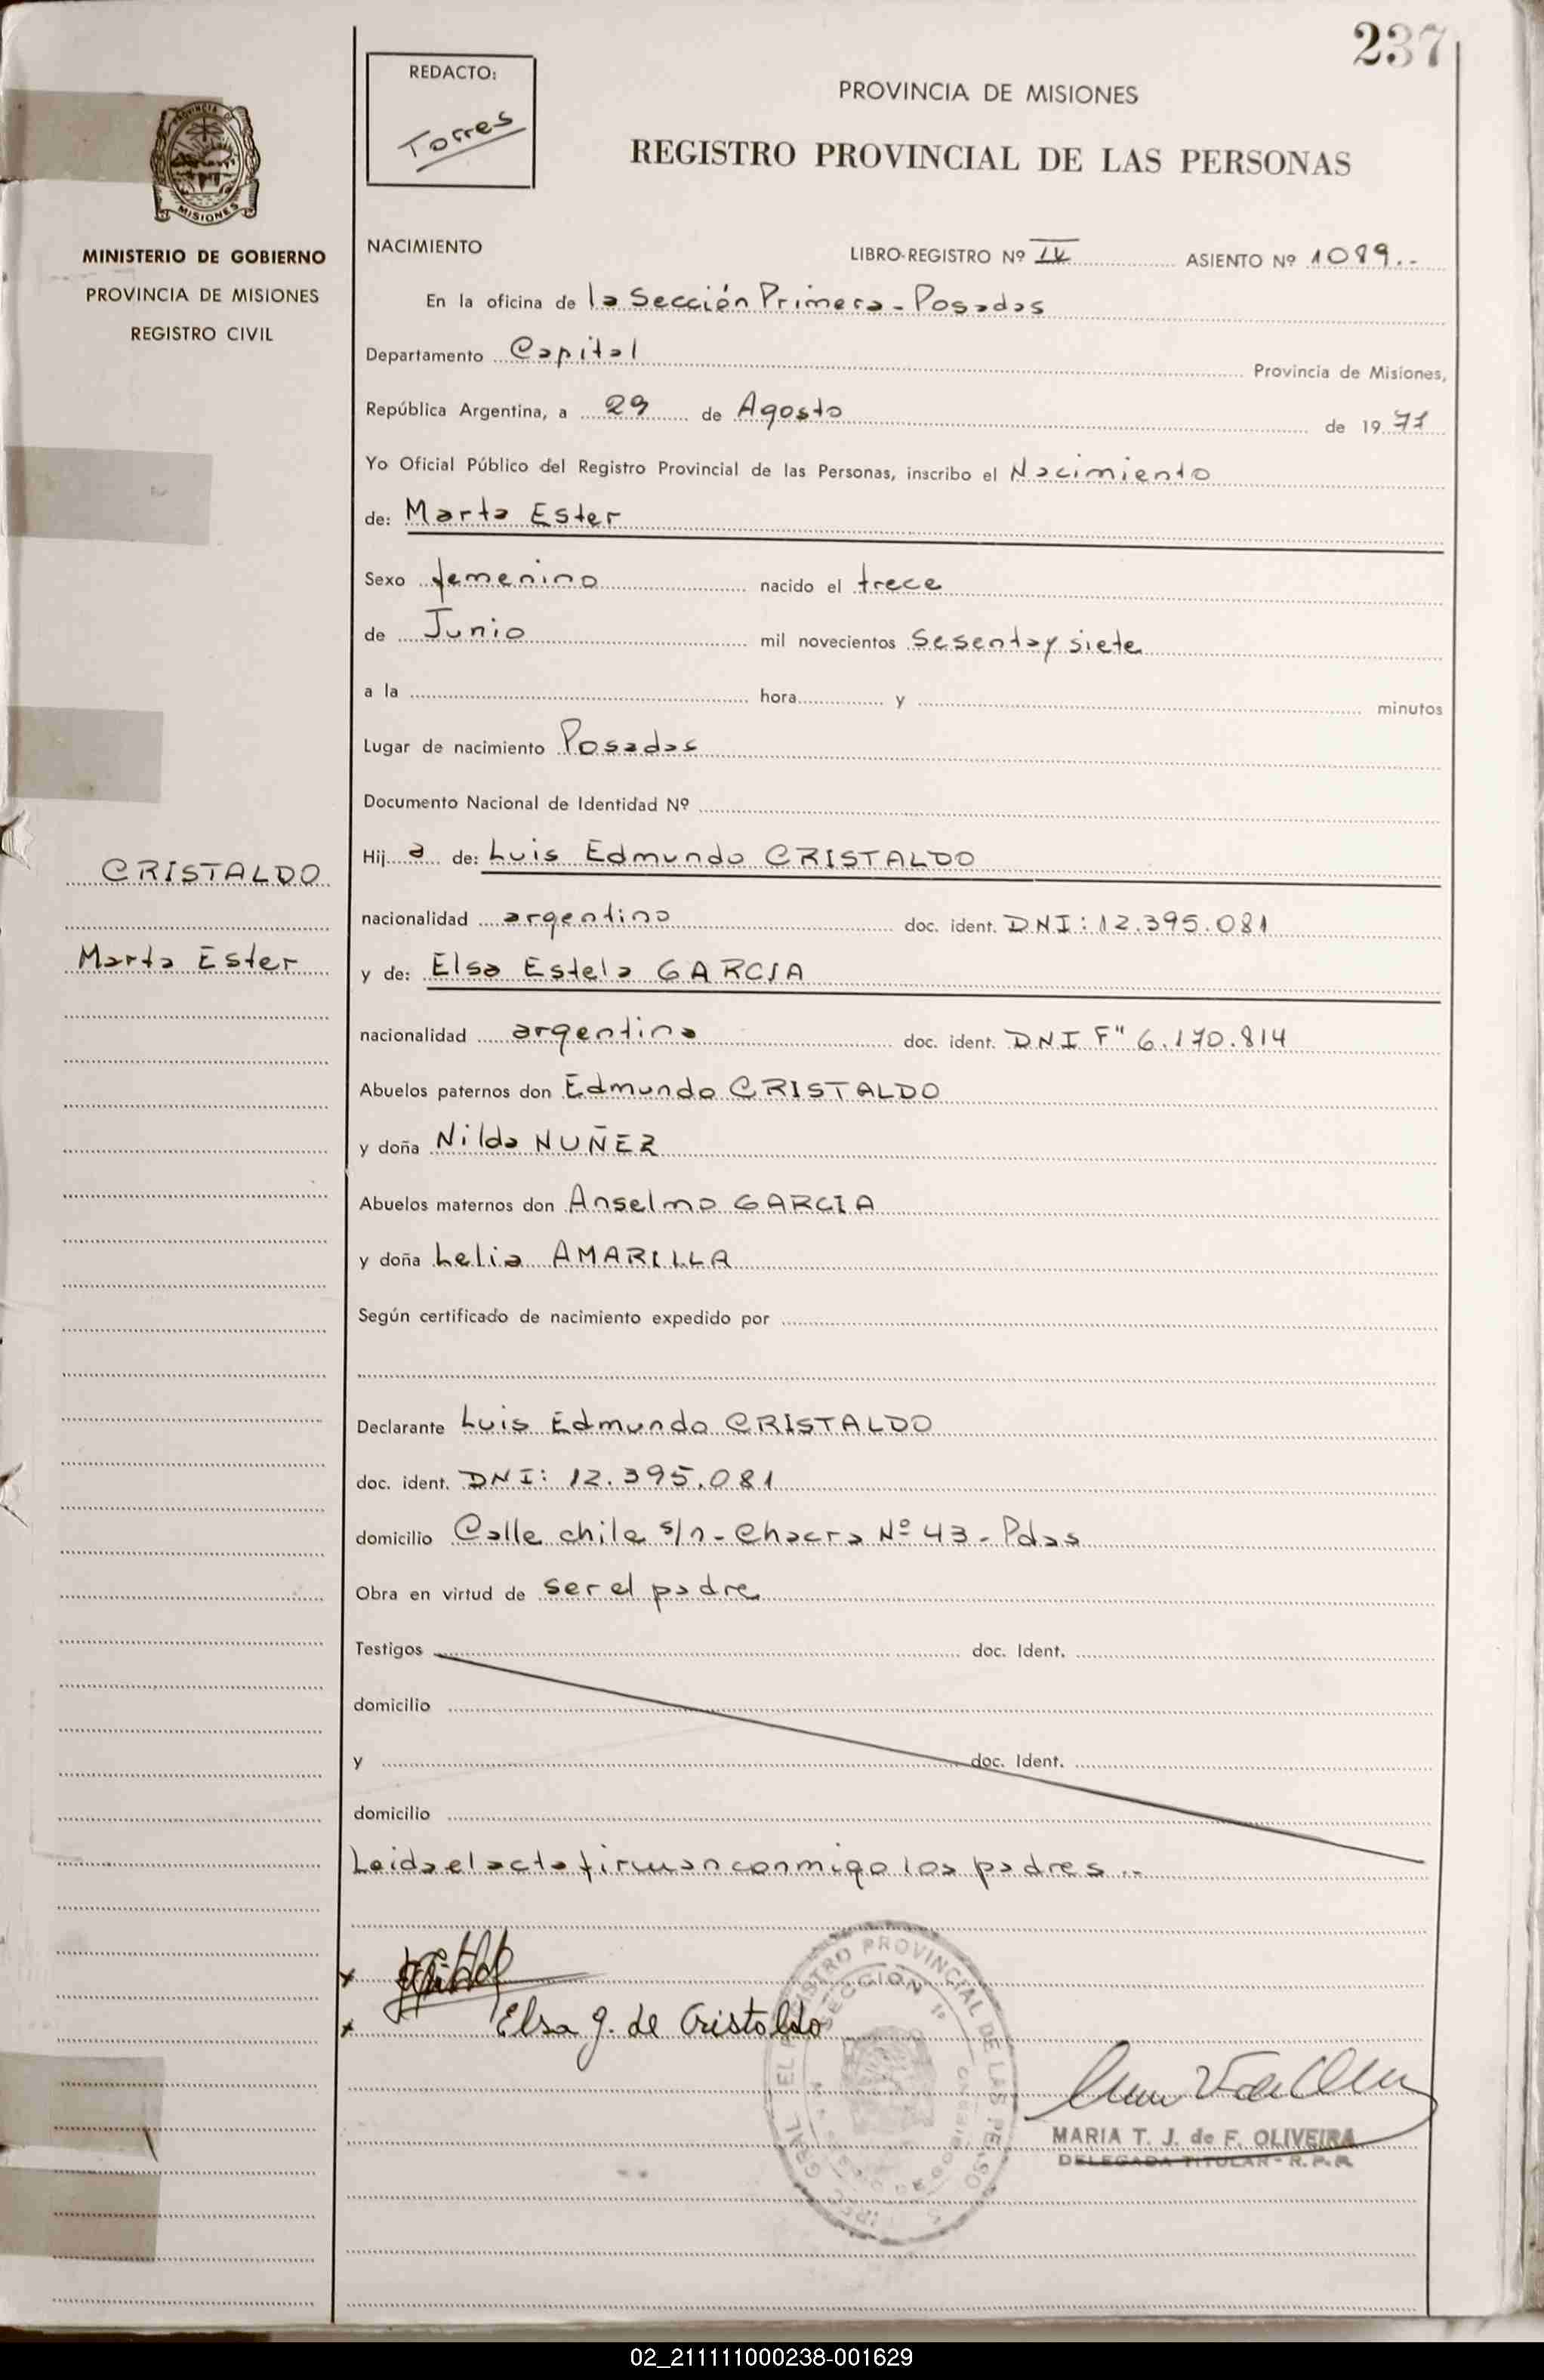 237
REDACTO:
Torres
PROVINCIA DE MISIONES
REGISTRO PROVINCIAL DE LAS PERSONAS
PROVINCIA DE
MISIONES
MINISTERIO DE GOBIERNO
PROVINCIA DE MISIONES
REGISTRO CIVIL
NACIMIENTO LIBRO-REGISTRO Nº IV ASIENTO Nº 1089..-
En la oficina de la Sección Primera - Posadas
Departamento Capital Provincia de Misiones,
República Argentina, a 29 de Agosto de 19 71
Yo Oficial Público del Registro Provincial de las Personas, inscribo el Nacimiento
de: Marta Ester
Sexo femenino nacido el trece
de Junio mil novecientos Sesenta y siete
a la hora y minutos
Lugar de nacimiento Posadas
Documento Nacional de Identidad Nº
CRISTALDO
Marta Ester
Hij a de: Luis Edmundo CRISTALDO
nacionalidad argentino doc. ident. DNI: 12.395.081
y de: Elsa Estela GARCIA
nacionalidad argentina doc. ident. DNI F" 6.170.814
Abuelos paternos don Edmundo CRISTALDO
y doña Nilda NUÑEZ
Abuelos maternos don Anselmo GARCIA
y doña Lelia AMARILLA
Según certificado de nacimiento expedido por
Declarante Luis Edmundo CRISTALDO
doc. ident. DNI: 12.395.081
domicilio Calle chile s/n - Chacra Nº 43 - Pdas
Obra en virtud de ser el padre
Testigos doc. Ident.
domicilio
y doc. Ident.
domicilio
Leida el acta firman conmigo los padres..-
x
x Elsa g. de Cristaldo
REGISTRO PROVINCIAL DE LAS PERSO
SECCION 1º
MARIA T. J. de F. OLIVEIRA
DELEGADA TITULAR - R. P. P.
02_211111000238-001629